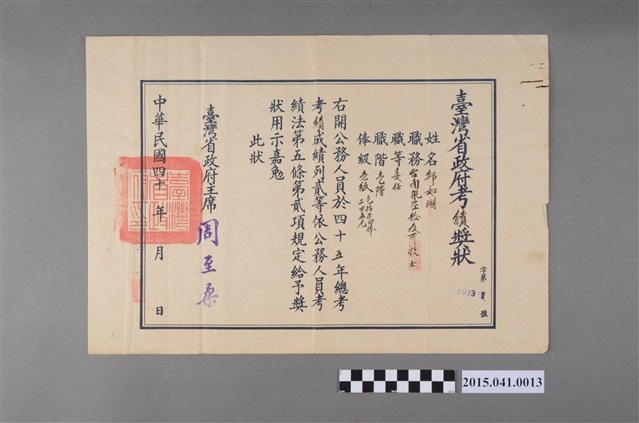 臺灣省政府考績獎狀
字第
號
姓名邱如湖
職務台南風[...]技士
職等委任
職階壹階
俸級壹級
右開公務人員於四十五年總考
考績成績列貳等依公務人員考
績法第五條第貳項規定給予獎
狀用示嘉勉
此狀
臺灣省政府主席
周至柔
中華民國四十年月日
2015.041.0013